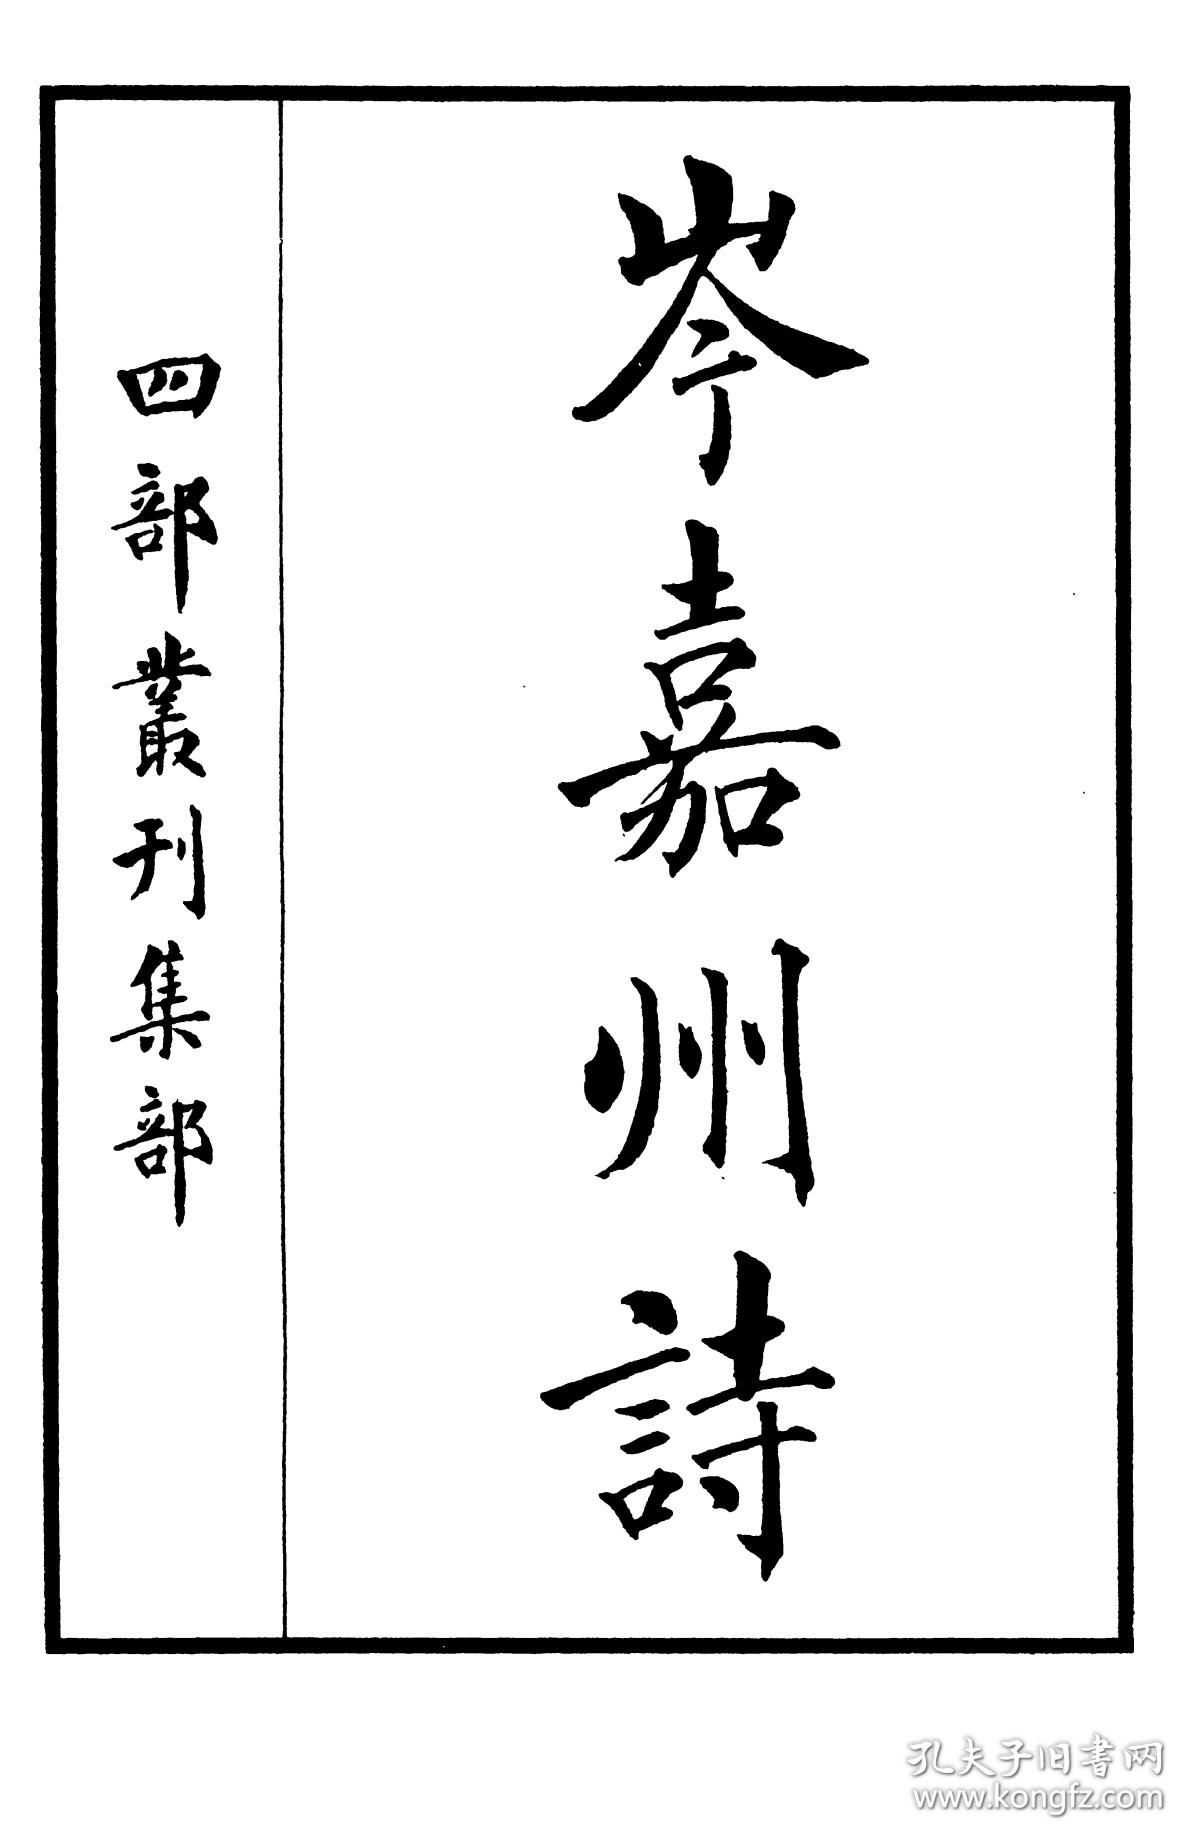 岑嘉州詩
四部叢刊集部
孔夫子旧書网
www.kongfz.com